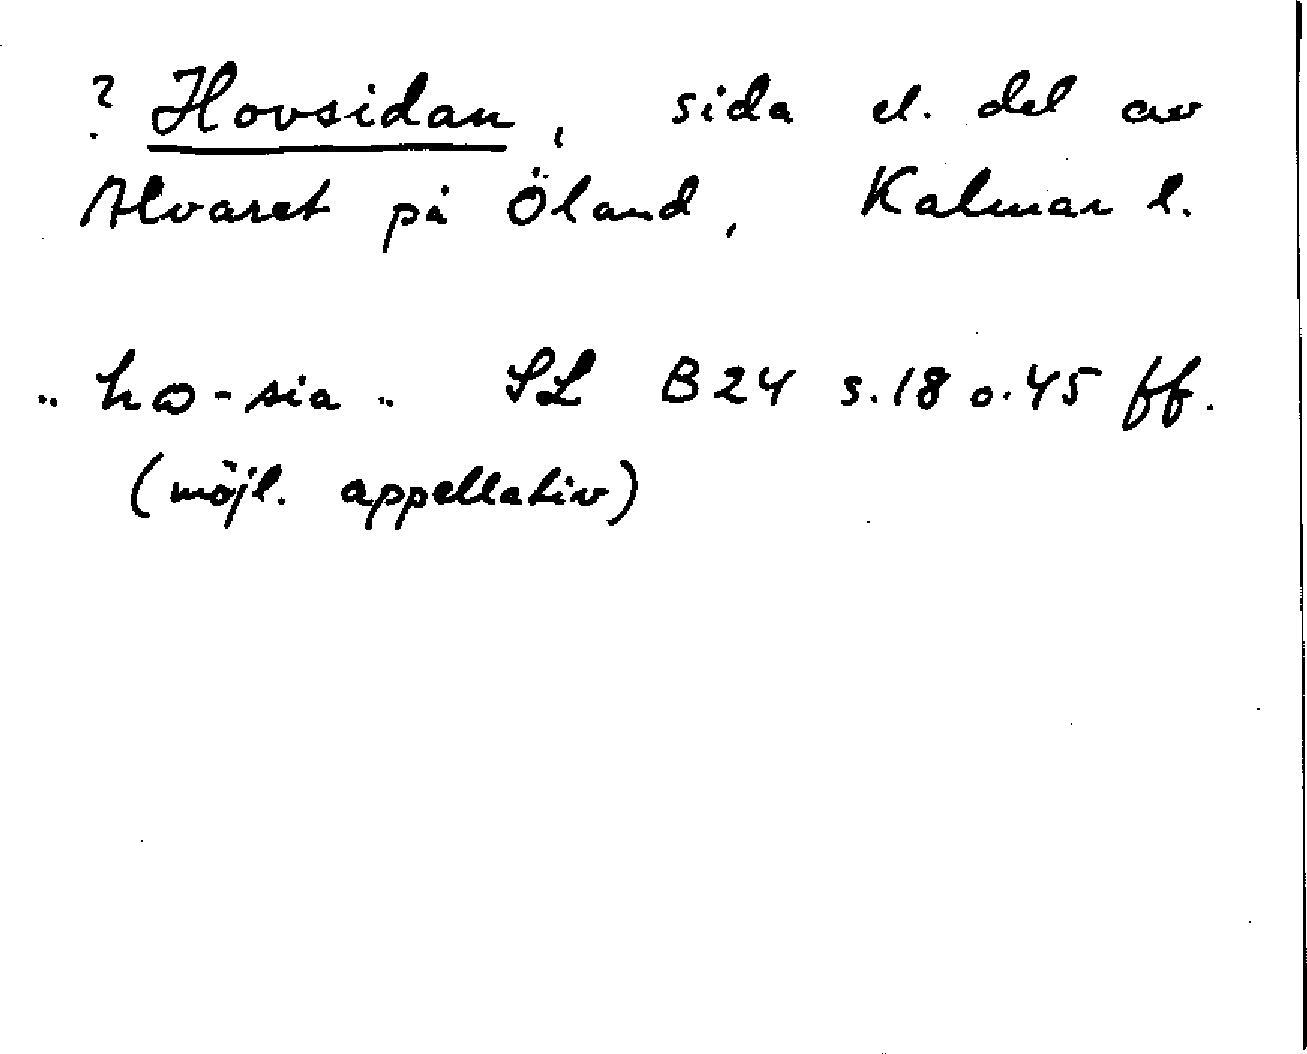 ? Hovsidan, sida el. del av
Alvaret på Öland, Kalmar l.
"hω-sia" SL B24 s.18 o.45 ff.
(möjl. appellativ)